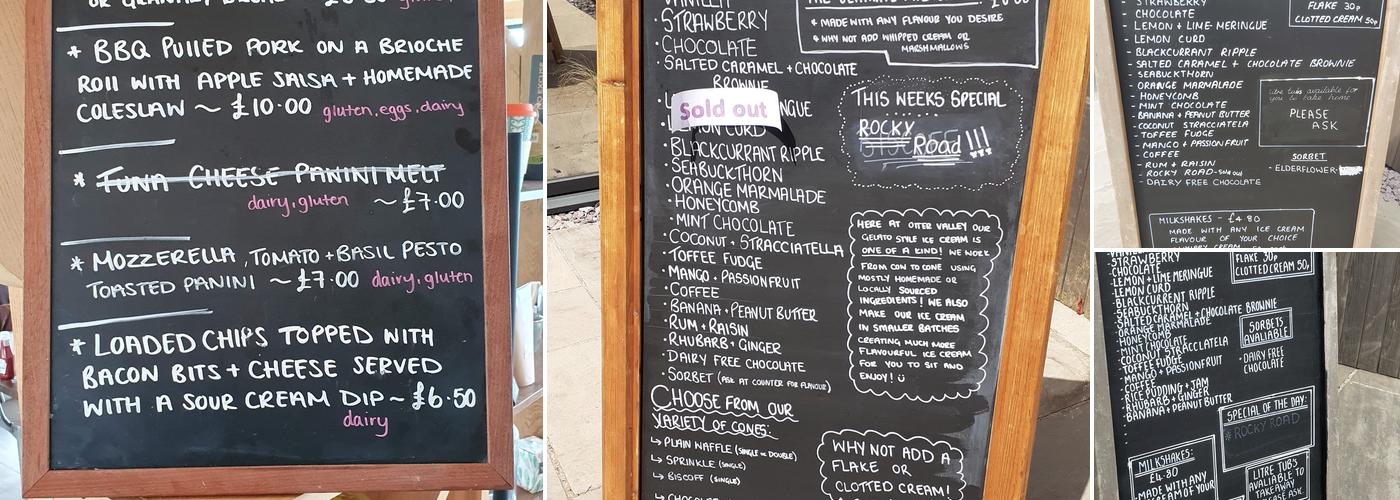 * BBQ PUllED PORK ON A BRIOCHE
ROll WITH APPLE SALSA + HOMEMADE
COLESLAW ~ £10.00 gluten, eggs, dairy
* TUNA CHEESE PANINI MELT
dairy, gluten ~ £7.00
* MOZZERELLA, TOMATO + BASIL PESTO
TOASTED PANINI ~ £7.00 dairy, gluten
* LOADED CHIPS TOPPED WITH
BACON BITS + CHEESE SERVED
WITH A SOUR CREAM DIP ~ £6.50
dairy
· STRAWBERRY
· CHOCOLATE
· SALTED CARAMEL + CHOCOLATE
BROWNIE
Sold out
CURD
· BLACKCURRANT RIPPLE
· SEABUCKTHORN
· ORANGE MARMALADE
· HONEYCOMB
· MINT CHOCOLATE
· COCONUT + STRACCIATELLA
· TOFFEE FUDGE
· MANGO + PASSIONFRUIT
· COFFEE
· BANANA + PEANUT BUTTER
· RUM + RAISIN
· RHUBARB + GINGER
· DAIRY FREE CHOCOLATE
· SORBET (ASK AT COUNTER FOR FLAVOUR)
CHOOSE FROM OUR
VARIETY OF CONES:
↳ PLAIN NAFFLE (SINGLE OR DOUBLE)
↳ SPRINKLE (SINGLE)
↳ BISCOFF (SINGLE)
* MADE WITH ANY FLAVOUR YOU DESIRE
* WHY NOT ADD WHIPPED CREAM OR
MARSHMALLOWS
THIS WEEKS SPECIAL
ROCKY
Road !!!
HERE AT OTTER VALLEY OUR
GELATO STYLE ICE CREAM IS
ONE OF A KIND! WE WORK
FROM COW TO CONE USING
MOSTLY HOMEMADE OR
LOCALLY SOURCED
INGREDIENTS! WE ALSO
MAKE OUR ICE CREAM
IN SMALLER BATCHES
CREATING MUCH MORE
FLAVOURFUL ICE CREAM
FOR YOU TO SIT AND
ENJOY! ü
WHY NOT ADD A
FLAKE OR
CLOTTED CREAM!
- STRAWBERRY
- CHOCOLATE
- LEMON + LIME MERINGUE
- LEMON CURD
- BLACKCURRANT RIPPLE
- SALTED CARAMEL + CHOCOLATE BROWNIE
- SEABUCKTHORN
- ORANGE MARMALADE
- HONEYCOMB
- MINT CHOCOLATE
- BANANA + PEANUT BUTTER
- COCONUT STRACCIATELA
- TOFFEE FUDGE
- MANGO + PASSIONFRUIT
- COFFEE
- RUM + RAISIN
- ROCKY ROAD - Sold out
- DAIRY FREE CHOCOLATE
FLAKE 30p
CLOTTED CREAM 50p
Litre tubs available for
you to take home
PLEASE
ASK
SORBET
- ELDERFLOWER
MILKSHAKES - £4.80
MADE WITH ANY ICE CREAM
FLAVOUR OF YOUR CHOICE
- STRAWBERRY
- CHOCOLATE
- LEMON + LIME MERINGUE
- LEMON CURD
- BLACKCURRENT RIPPLE
- SEABUCKTHORN
- SALTED CARAMEL + CHOCOLATE BROWNIE
- ORANGE MARMALADE
- HONEYCOMB
- MINT CHOCOLATE
- COCONUT STRACCLATELA
- TOFFEE FUDGE
- MANGO + PASSIONFRUIT
- COFFEE
- RICE PUDDING + JAM
- RHUBARB + GINGER
- BANANA + PEANUT BUTTER
FLAKE 30p
CLOTTED CREAM 50p
SORBETS
AVALIABLE
· DAIRY FREE
CHOCOLATE
SPECIAL OF THE DAY:
* ROCKY ROAD
MILKSHAKES:
£4.80
- MADE WITH ANY
LITRE TUB'S
AVALIABLE TO
TAKE AWAY